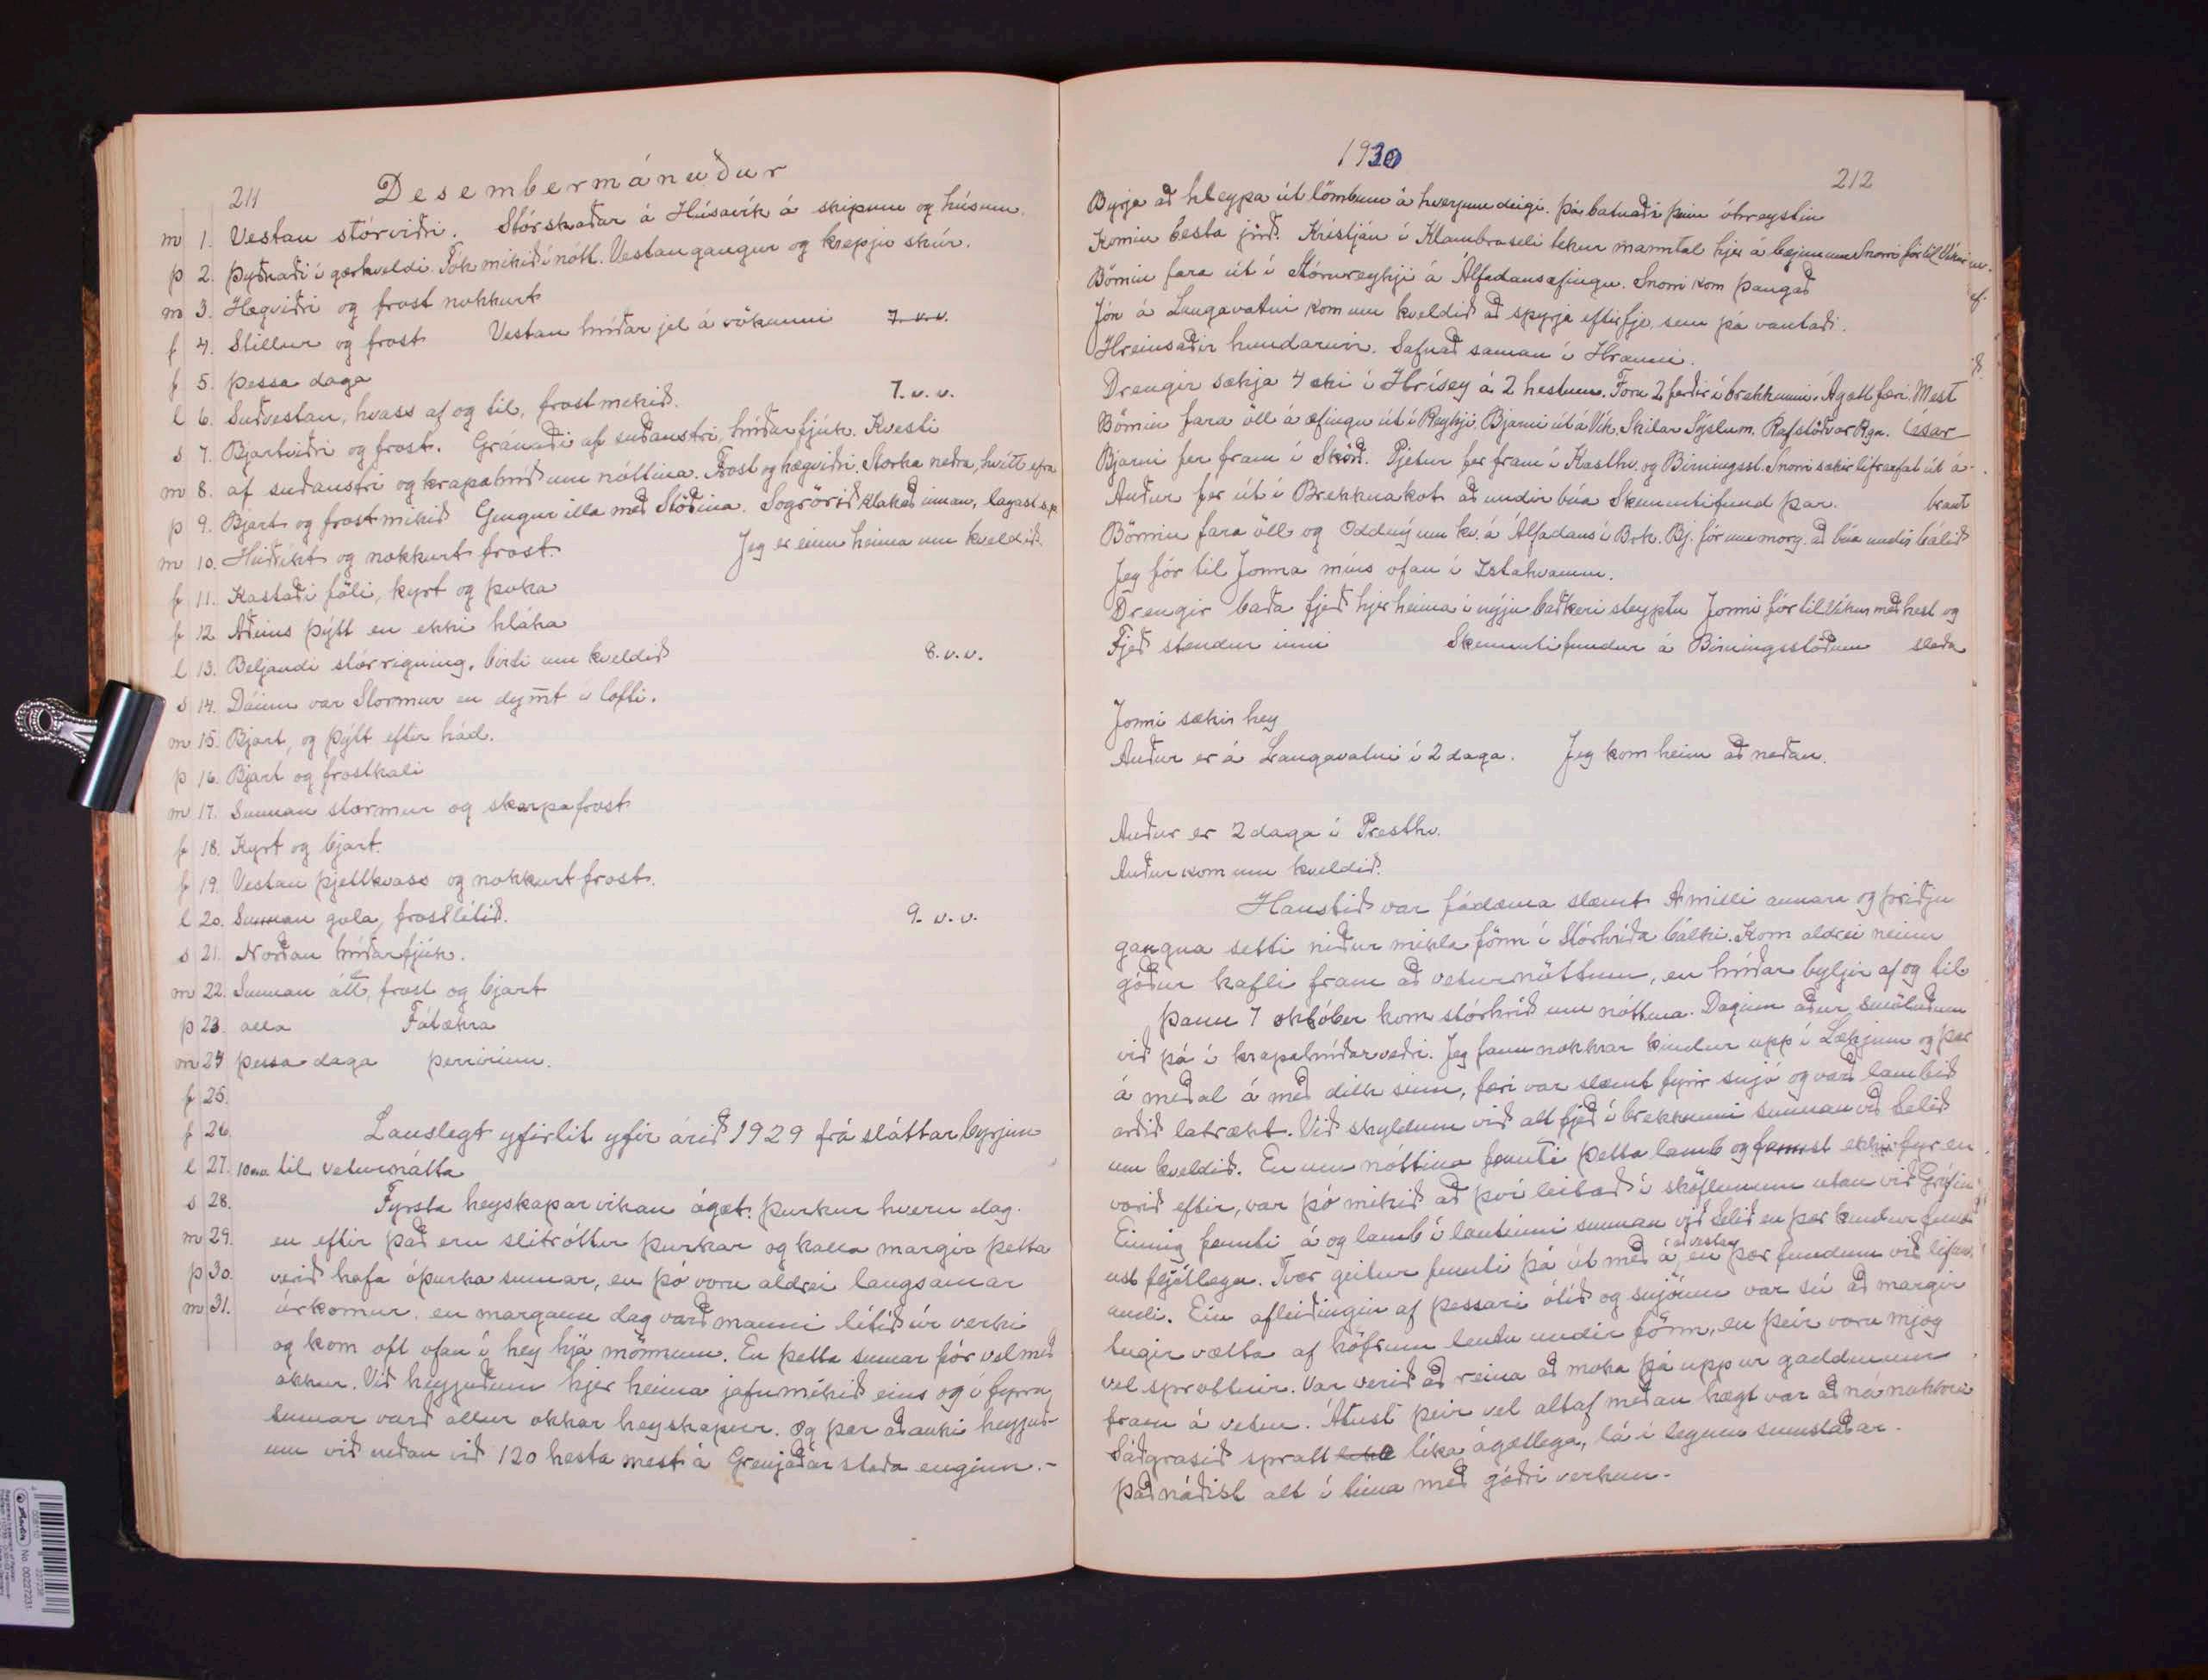 211 Desembermánuður
m 1. Vestan stórviðri. Stórskaðar á Húsavík á skipum og húsum.
þ 2. Þyðnaði í gærkveldi. Tók mikið í nótt. Vestangangur og kreppju skúr.
m 3. Hægviðri og frost nokkurt
f 4. Stillur og frost Vestan hríðar jel á vökunni 7. v.v.
f 5. þessa daga
l 6. Suðvestan, hvass af og til, frost mikið. 7. v. v.
s 7. Bjartviðri og frost. Gránaði af suðaustri, hríðarfjúk. Kvesti
m 8. af suðaustri og krapahríð um nóttina. Frost og hægviðri. Storka neðra, hvítt efra
þ 9. Bjart og frost mikið Gengur illa með Stöðina. Sogrörið klakað innan, lagast s.p.
m 10. Heiðríkt og nokkurt frost. Jeg er einn heima um kveldið.
f 11. Kastaði föli, kyrt og þoka
f 12 Aðeins þýtt en ekki hláka
l 13. Beljandi stórrigning, birti um kveldið 8. v.v.
s 14. Dáinn var Stormur en dymt í lofti.
m 15. Bjart, og þýtt eftir hád.
þ 16. Bjart og frostkali
m 17. Sunnan stormur og skarpafrost
f 18. Kyrt og bjart.
f 19. Vestan þjetthvass og nokkurt frost.
l 20. Sunnan gola, frostlítið. 9. v. v.
s 21. Norðan hríðarfjúk.
m 22. Sunnan átt, frost og bjart
þ 23. alla Fátækra
m 24 þessa daga þerririnn.
f 25.
f 26. Lauslegt yfirlit yfir árið 1929 frá sláttarbyrjun
l 27. 10 v.v. til veturnátta
s 28. Fyrsta heyskapar vikan ágæt. þurkur hvern dag.
m 29. en eftir það eru slitróttir þurkar og kalla margir þetta
þ 30. verið hafa óþurka sumar, en þó voru aldrei langsamar
m 31. úrkomur, en margann dag varð manni lítið úr verki
og kom oft ofan í hey hjá mönnum. En þetta sumar fór vel með
okkur. Við heyjuðum hjer heima jafnmikið eins og í fyrra
sumar varð allur okkar heyskapur. Og þar að auki heyjuð-
um við neðan við 120 hesta mest á Grenjaðarstaða enginn.-
1930
212
Byrja að hleypa út lömbum á hverjum deigi. þá batnaði þeim óhreystin
Komin besta jörð. Kristján í Klambraseli tekur manntal hjer á bæjunum Snorri fór til Víkur
Börnin fara út í Stórureykji á Álfadansæfingu. Snorri kom þangað
Jón á Laugavatni kom um kveldið að spyrja eftir fje, sem þá vantaði.
Hreinsaðir hundarnir. Safnað saman í Hrauni.
Drengir sækja 4 æki í Hrísey á 2 hestum. Foru 2 ferðir í brekkunni. Ágætt færi. Mest
Börnin fara öll á æfingu út í Reykji. Bjarni út á Vík. Skilar Sýslum. Rafstöðvar Rgn. Císar
Bjarni fer fram í Skörð. Pjetur fer fram í Kasthv. og Birningsst. Snorri sækir lifraefal út á-
Auður fer út í Brekknakot að undirbúa Skemmtifund þar. braut
Börnin fara öll og Oddný um kv. á Álfadans í Brk. Bj. fór um morg. að búa undir bálið
Jeg fór til Jonna míns ofan í Ystahvamm.
Drengir baða fjeð hjer heima í nýju baðkeri steyptu Jonni fór til Víkur með hest og
Fjeð stendur inni Skemmtifundur á Birningsstöðum sleða
Jonni sækir hey
Auður er á Laugavatni í 2 daga. Jeg kom heim að neðan.
Auður er 2 daga í Presthv.
Auður kom um kveldið.
Haustið var fádæma slæmt. Á milli annara og þriðju
gangna setti niður mikla fönn í Stórhríða bálki. Kom aldrei neinn
góður kafli fram að veturnóttum, en hríðar byljir af og til
Þann 7 október kom stórhríð um nóttina. Daginn áður smöluðum
við þá í krapahríðarveðri. Jeg fann nokkrar kindur upp í Lækjum og þar
á meðal á með dilk sinn, færi var slæmt fyrir snjó og varð lambið
orðið latrækt. Við skyldum við alt fjeð í brekkunni sunnan við Selið
um kveldið. En um nóttina fennti þetta lamb og fannst ekki fyr en
vorið eftir, var þó mikið að því leitað í sköflunum utan við Gröfin
Einnig fennti á og lamb í lautinni sunnan við Selið en þær kindur fund
ust fljótlega. Tvær geitur fennti þá út með á, að vestan en þær fundum við lifan.
andi. Ein afleiðingin af þessari ótíð og snjónum var sú að margir
teigir vælta af höfrum lentu undir fönn, en þeir voru mjög
vel sprottnir. Var verið að reina að moka þá upp úr gaddinum
fram á vetur. Átust þeir vel altaf meðan hægt var að ná nokkru
Sáðgrasið spratt líka ágætlega, lá í legum sumstaðar.
Það náðist alt í tíma með góðri verkun.-